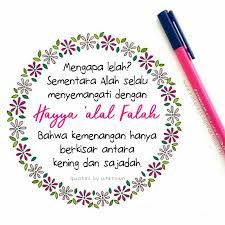 Mengapa lelah?
Sementara Allah selalu
menyemangati dengan
Hayya 'alal Falah
Bahwa kemenangan hanya
berkisar antara
kening dan sajadah
quotes by unknown